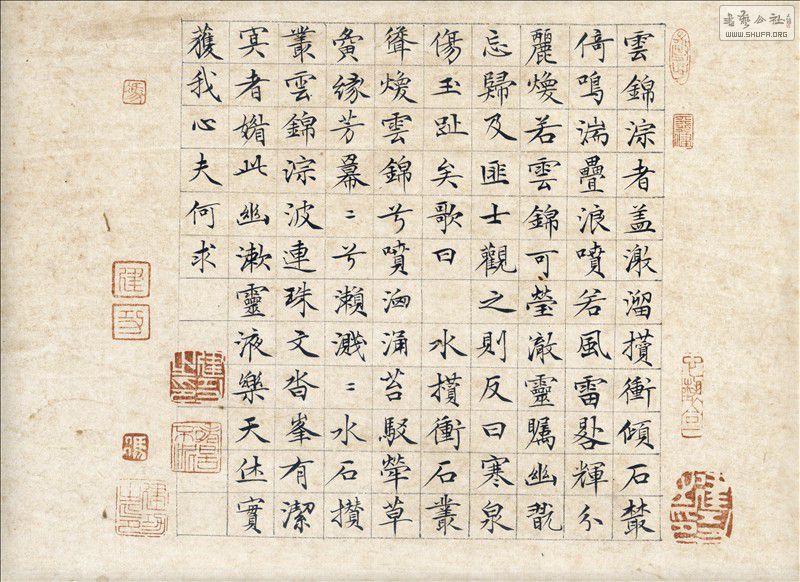 書藝公社
WWW.SHUFA.ORG
雲錦淙者盖激溜攢衝傾石藂
倚鳴湍疊浪噴若風雷畧輝分
麗煥若雲錦可瑩澈靈矚幽翫
忘歸及匪士觀之則反曰寒泉
傷玉趾矣歌曰 水攢衝石叢
聳煥雲錦兮噴洶涌苔駁犖草
夤緣芳冪〻兮瀨濺〻水石攢
叢雲錦淙波連珠文沓峯有潔
冥者媚此幽漱靈液樂天休實
獲我心夫何求